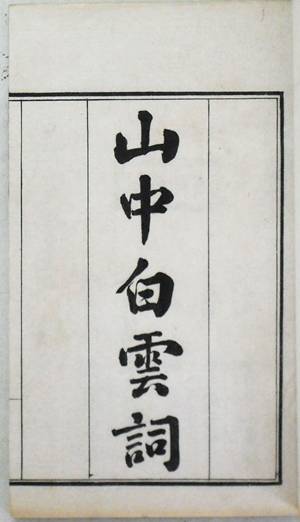 山中白雲詞